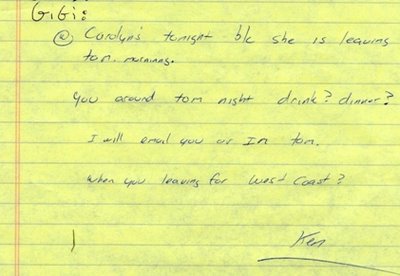 GiGi:
@ Carolyn's tonight b/c she is leaving
tom. morning.
You around tom night drink? dinner?
I will email you air in tom.
When you leaving for West Coast?
Ken